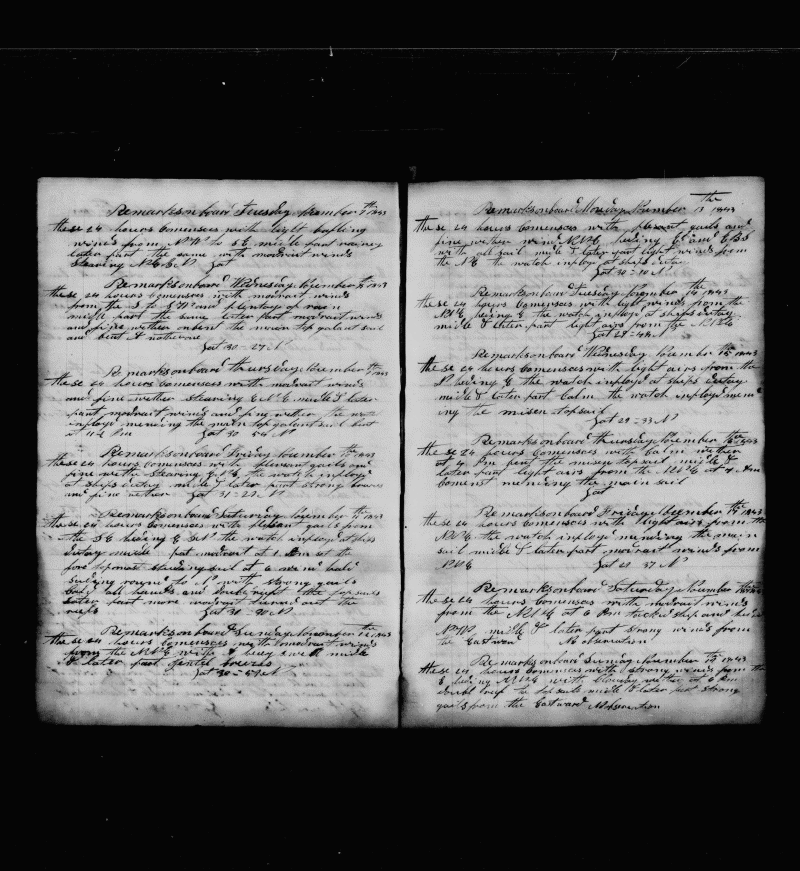 Remarks on board Tuesday November 7th 1843
these 24 hours Comenses with light bafling
winds from to S E midle part rainey
later part the same with modrait winds
Stearing Lat
Remarks on board Wednesday November 8th 1843
these 24 hours Comenses with modrait winds
from the S to and plenty of rain
midle part the same later part modrait winds
and fine wether onbent the main top galant sail
and bent A nother one
Lat 30 - 27 N
Remarks on board thursday November 9th 1843
these 24 hours Comenses with modrait winds
and fine wether Stearing E N E midle & later
part modrait winds and fine wether the watch
imployd mending the main top galant sail bent
at Pm Lat 30 - 54 N
Remarks on board Friday November 10th 1843
these 24 hours Comenses with plesant gails and
fine wether Stearing the watch imployd
at ships dutay midle & later part strong breses
and fine wether Lat 31 - 23 N
Remarks on board Saturday November 11th 1843
these 24 hours Comenses with plesant gails from
the S E heding the watch imployd at ships
dutay midle part modrait at 1 Am set the
fore topmast studing sail at 6 wind
to N with strong gails
all hands and doubl reeft the top sails
Later part more modrait turned out the
reefs Lat 30 - 20 N
Remarks on board Sunday November 12th 1843
these 24 hours Comenses with modrait winds
from the with A hevy swell midle
& later part gentel breeses
Lat 30 - 59 N
Remarks on board Monday November 13th 1843
these 24 hours Comenses with plesant gails and
fine wether wind heding E and
with all sail midle & later part light winds from
the N E the watch imployd at ships dutay
Lat 30 - 10 N
Remarks on board Tuesday November 14th 1843
these 24 hours Comenses with light winds from the
heding E the watch imployd at ships dutay
midle & later part light airs from the
Lat 29 - 48 N
Remarks on board Wednesday November 15th 1843
these 24 hours Comenses with light airs from the
N heding E the watch imployd at ships dutay
midle & later part Calm the watch imployd mend
ing the misen topsail
Lat 29 - 33 N
Remarks on board thursday November 16th 1843
these 24 hours Comenses with Calm wether
at 4 Pm bent the misen topsail midle &
later part light airs from the at 7 Am
Comenst mending the main sail
Lat
Remarks on board Friday November 17th 1843
these 24 hours Comenses with light airs from the
the watch imployd mending the main
sail midle & later part modrait winds from
Lat 29 37 N
Remarks on board Saturday November 18th 1843
these 24 hours Comenses with modrait winds
from the at 6 Pm tackd ship and heded
midle & later part strong winds from
the Eastward No observation
Remarks on board Sunday November 19th 1843
these 24 hours Comenses with strong winds from the
E heding with cloudy wether at 6 Pm
doubl reeft the top sails midle & later part strong
gails from the Eastward No observation